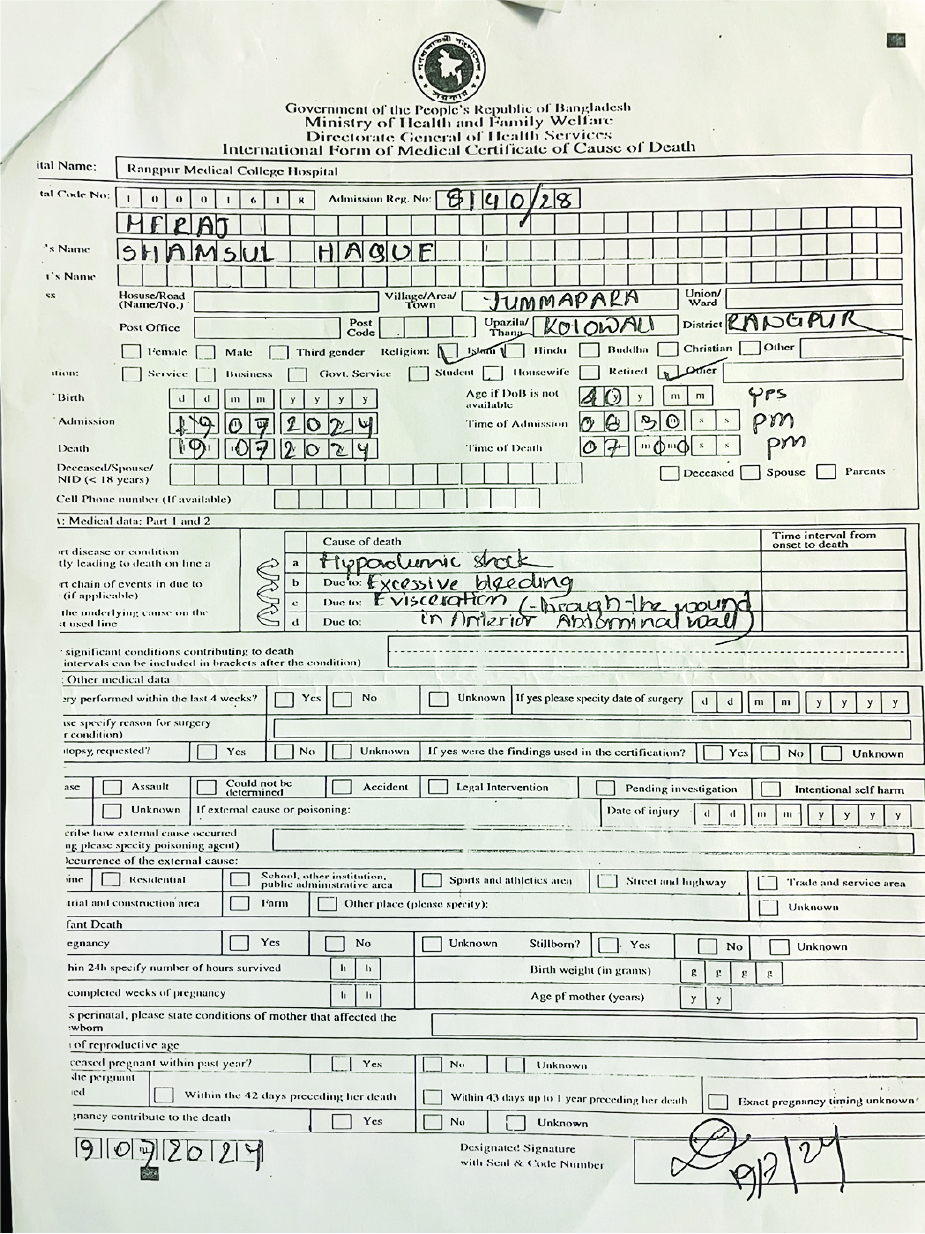 গণপ্রজাতন্ত্রী বাংলাদেশ সরকার
Government of the People's Republic of Bangladesh
Ministry of Health and Family Welfare
Directorate General of Health Services
International Form of Medical Certificate of Cause of Death
ital Name: Rangpur Medical College Hospital
tal Code No: 1 0 0 0 1 6 1 8 Admission Reg. No: 8140/28
MERAJ
's Name SHAMSUL HAQUE
r's Name
ss Hosuse/Road (Name/No.) Village/Area/ Town JUMMAPARA Union/ Ward
Post Office Post Code Upazila/ Thana KOTOWALI District RANGPUR
Female Male Third gender Religion: Islam Hindu Buddha Christian Other
tion: Service Business Govt. Service Student Housewife Retired Other
Birth d d m m y y y y Age if DoB is not available 40 y m m yrs
Admission 19 07 2024 Time of Admission 06 30 s s pm
Death 19 07 2024 Time of Death 07 00 s s pm
Deceased/Spouse/
NID (< 18 years) Deceased Spouse Parents
Cell Phone number (If available)
: Medical data: Part 1 and 2
rt disease or condition Cause of death Time interval from onset to death
tly leading to death on line a a Hypovolumic shock
rt chain of events in due to b Due to: Excessive bleeding
(if applicable) c Due to: Evisceration (through the wound
the underlying cause on the d Due to: in Anterior Abdominal wall)
t used line
significant conditions contributing to death
intervals can be included in brackets after the condition)
: Other medical data
ery performed within the last 4 weeks? Yes No Unknown If yes please specity date of surgery d d m m y y y y
se specify reason for surgery
r condition)
topsy, requested? Yes No Unknown If yes were the findings used in the certification? Yes No Unknown
ase Assault Could not be determined Accident Legal Intervention Pending investigation Intentional self harm
Unknown If external cause or poisoning: Date of injury d d m m y y y y
cribe how external cause occurred
ng please specity poisoning agent)
occurrence of the external cause:
me Residential School, other institution, public administrative area Sports and athletics area Street and highway Trade and service area
trial and construction area Farm Other place (please specify): Unknown
fant Death
egnancy Yes No Unknown Stillborn? Yes No Unknown
hin 24h specify number of hours survived h h Birth weight (in grams) g g g g
completed weeks of pregnancy h h Age pf mother (years) y y
s perinatal, please state conditions of mother that affected the
wborn
of reproductive age
ceased pregnant within past year? Yes No Unknown
she pergnant
ed Within the 42 days preceding her death Within 43 days up to 1 year preceding her death Exact pregnancy timing unknown
gnancy contribute to the death Yes No Unknown
9 07 2024 Designated Signature
with Seal & Code Number 19/7/24